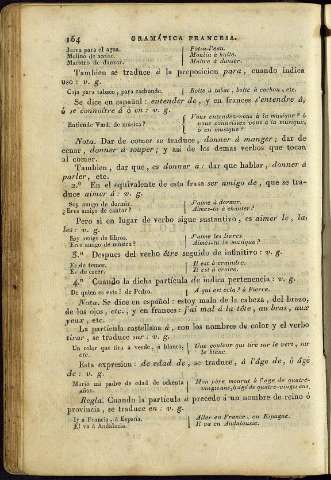 164 GRAMÁTICA FRANCESA.
Jarra para el agua. Pot-à-l'eau.
Molino de
Maestro de danzar. Maître à danser.
Tambien se traduce á la preposicion para, cuando indica
uso: v. g.
Caja para tabaco, para Boîte à tabac, boîte à cochon, etc.
Se dice en español: entender de, y en frances s'entendre à,
ó se connaître à ó en: v. g.
Entiende Vmd. de música? Vous entendez-vous à la musique? ó
à la musique,
ó en musique?
Nota. Dar de comer se traduce, donner à manger; dar de
cenar, donner à souper; y así de los demas verbos que tocan
al comer.
Tambien, dar que, es donner à: dar que hablar, donner à
parler, etc.
2.º En el equivalente de esta frase ser amigo de, que se tra-
duce aimer à: v. g.
Soy amigo de dormir. J'aime à dormir.
¿Eres amigo de cantar? Aimes-tu à chanter?
Pero si en lugar de verbo sigue sustantivo, es aimer le, la,
les: v. g.
Soy amigo de libros. J'aime les livres
Eres amigo de música? Aimes-tu la musique?
3.º Despues del verbo être seguido de infinitivo: v. g.
Es de temer. Il est à craindre.
Es de creer. Il est à croire.
4.º Cuando la dicha partícula de indica pertenencia: v. g.
De quien es esto? de Pedro. A qui est cela? à Pierre.
Nota. Se dice en español: estoy malo de la cabeza, del brazo,
de los ojos, etc., y en frances: j'ai mal à la tête, au bras, aux
yeux, etc.
La partícula castellana á, con los nombres de color y el verbo
tirar, se traduce sur: v. g.
Un color que tira á verde, á blanco, Une couleur qui tire sur le vert, sur
etc. le blanc.
Esta expresion: de edad de, se traduce, à l'âge de, ó âgé
de: v. g.
Murió mi padre de edad de ochenta Mon père mourut à l'âge de quatre-
años. vingts ans, ó âgé de quatre-vingts ans.
Regla. Cuando la partícula á precede á un nombre de reino ó
provincia, se traduce en: v. g.
Ir á Francia, á España. Aller en France, en Espagne.
Él va á Andalucía. Il va en Andalousie.